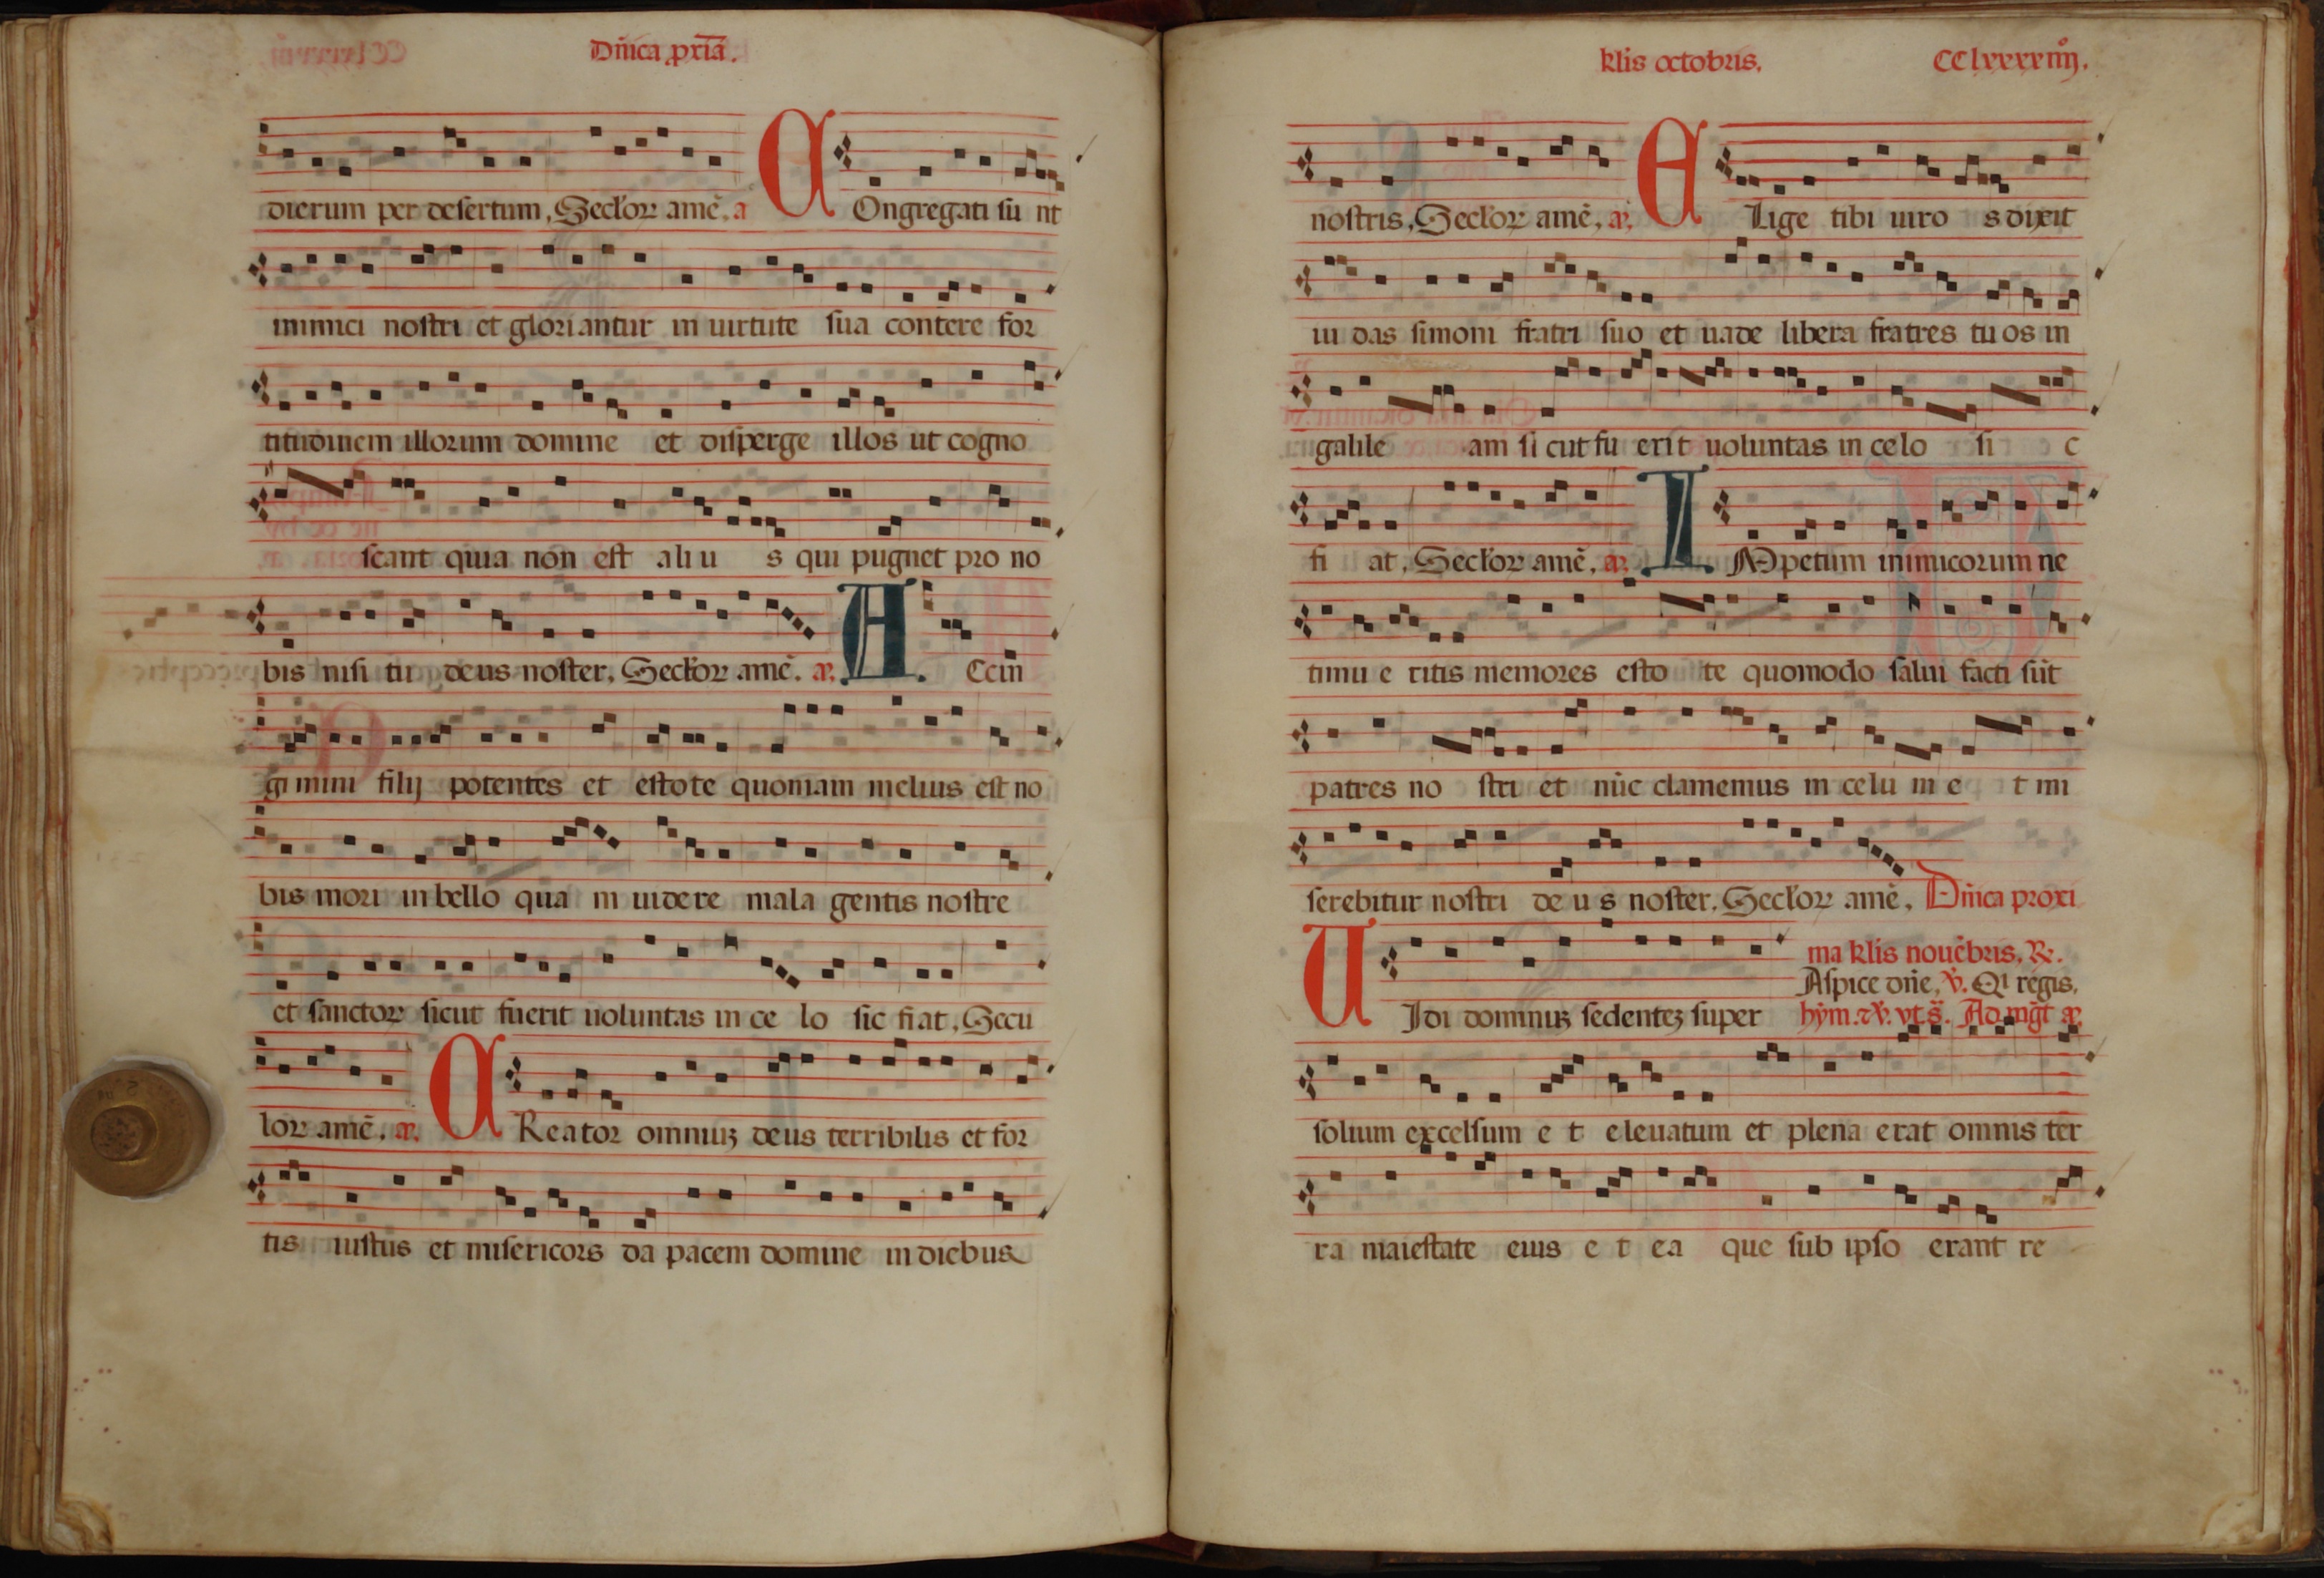 Dñica p̱xiã.
dierum per desertum, Secłoꝝ amẽ, a
COngregati su nt
inimici nostri et gloriantur in uirtute sua contere for
titudinem illorum domine et disperge illos ut cogno
scant quia non est ali u s qui pugnet pro no
bis nisi tu deus noster, Secłoꝝ amẽ. añ.
ACcin
gi mini filij potentes et estote quoniam melius est no
bis mori in bello qua m uidere mala gentis nostre
et sanctoꝝ sicut fuerit uoluntas in ce lo sic fiat, Secu
loꝝ amẽ. añ.
CReator omniuʒ deus terribilis et for
tis iustus et misericors da pacem domine in diebus
klis octobris.
CClxxxxiiij.
nostris, Secłoꝝ amẽ, añ.
ELige tibi uiro s dixit
iu das simoni fratri suo et uade libera fratres tu os in
galile am si cut fu erit uoluntas in celo si c
fi at, Secłoꝝ amẽ, añ.
IMpetum inimicorum ne
timu e ritis memores esto te quomodo salui facti sũt
patres no stri et nũc clamemus in celu m e t mi
serebitur nostri de u s noster, Secłoꝝ amẽ, Dñica proxi
ma klis nouẽbris, ℞.
Aspice dñe, ℣. Qi regis,
UIdi dominuʒ sedenteʒ super
hỹm. ⁊ ℣. vt s̃. Ad mg̃t añ.
solium excelsum e t eleuatum et plena erat omnis ter
ra maiestate eius e t ea que sub ipso erant re